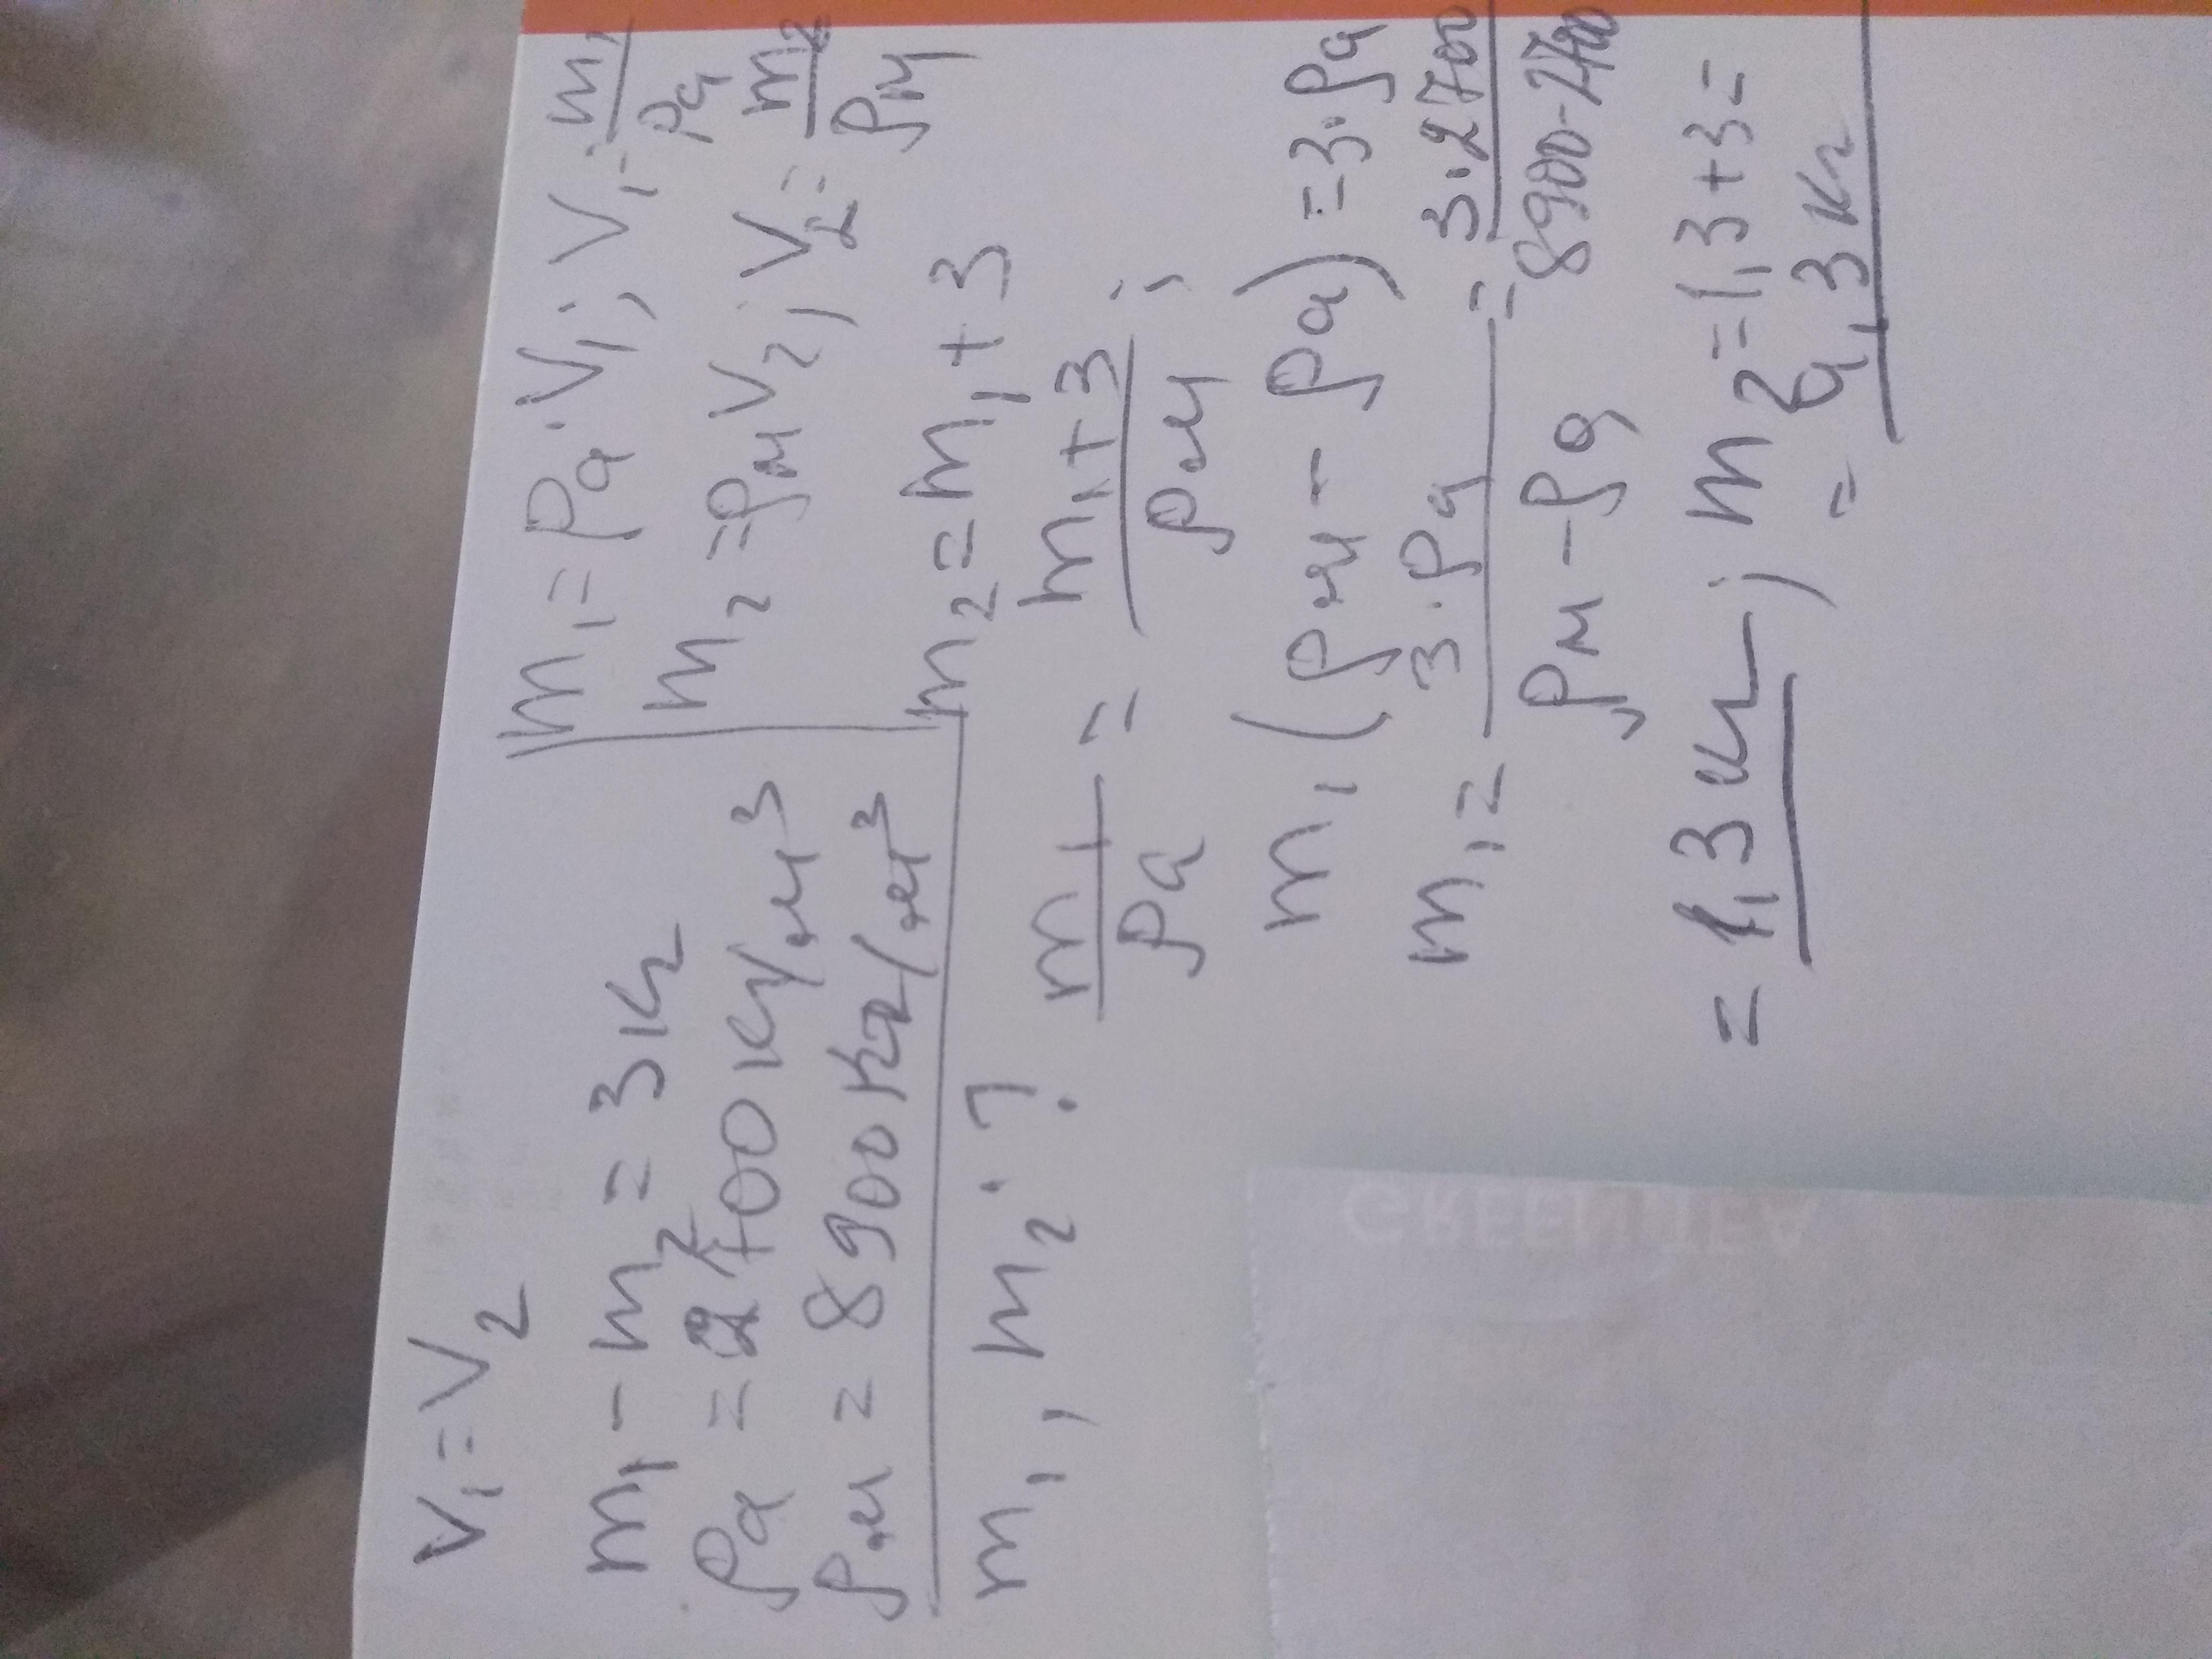 V₁ = V₂
m₁ - m₂ = 3 кг
ρа = 2700 кг/м³
ρм = 8900 кг/м³
m₁, m₂ ?
m₁ = ρа · V₁; V₁ = m₁/ρа
m₂ = ρм V₂; V₂ = m₂/ρм
m₂ = m₁ + 3
m₁/ρа = (m₁ + 3)/ρм ;
m₁ (ρм - ρа) = 3 · ρа
m₁ = 3 · ρа/(ρм - ρа) = 3 · 2700/(8900 - 2700)
= 1,3 кг ; m₂ = 1,3 + 3 =
= 4,3 кг
GREEN TEA